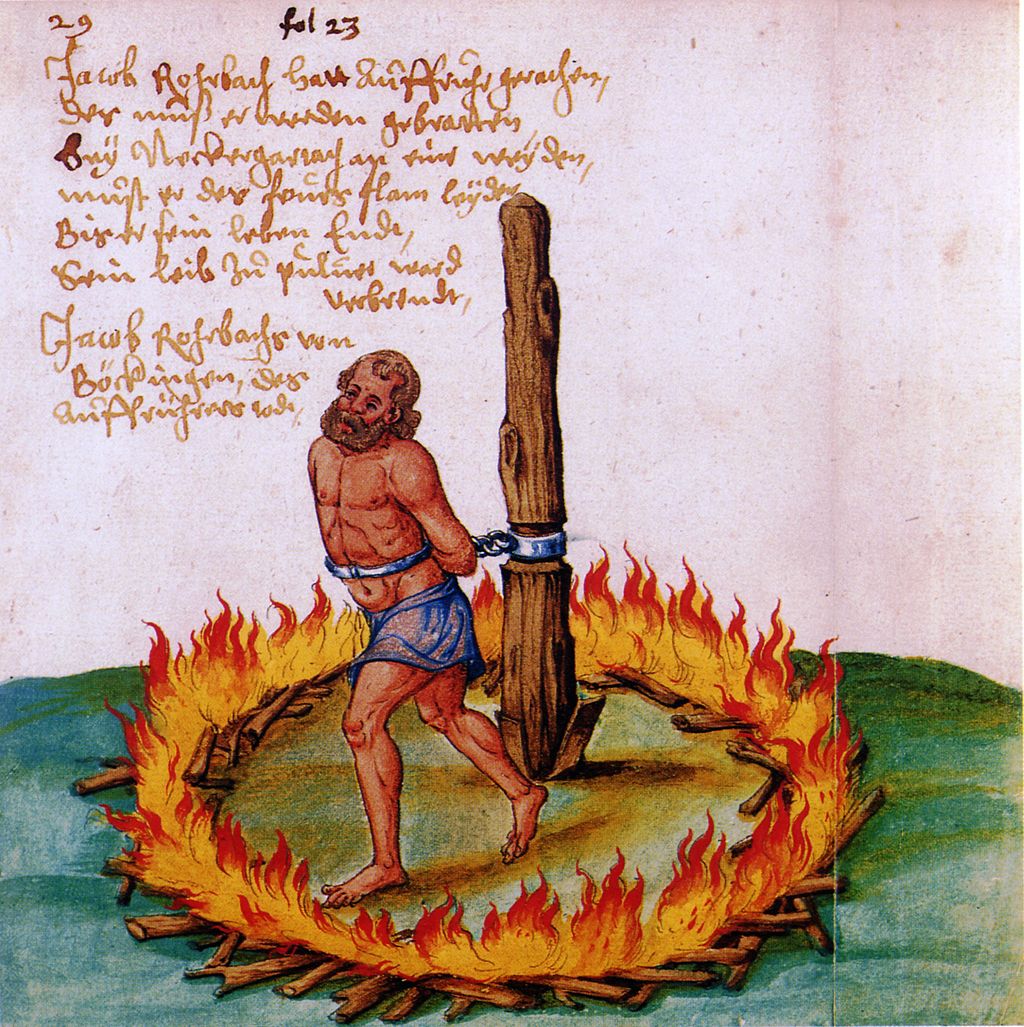 29 fol 23
Jacob Rohrbach hatt Auffruhr gerathen,
des muß er werden gebratten,
Bey Neckergartach an eine weyden,
must er des feurs flam leyden
Bis er sein leben Endt,
Sein leib zu puluer ward
verbrendt,
Jacob Rohrbachs von
Böckingen, des
Auffrührers todt,